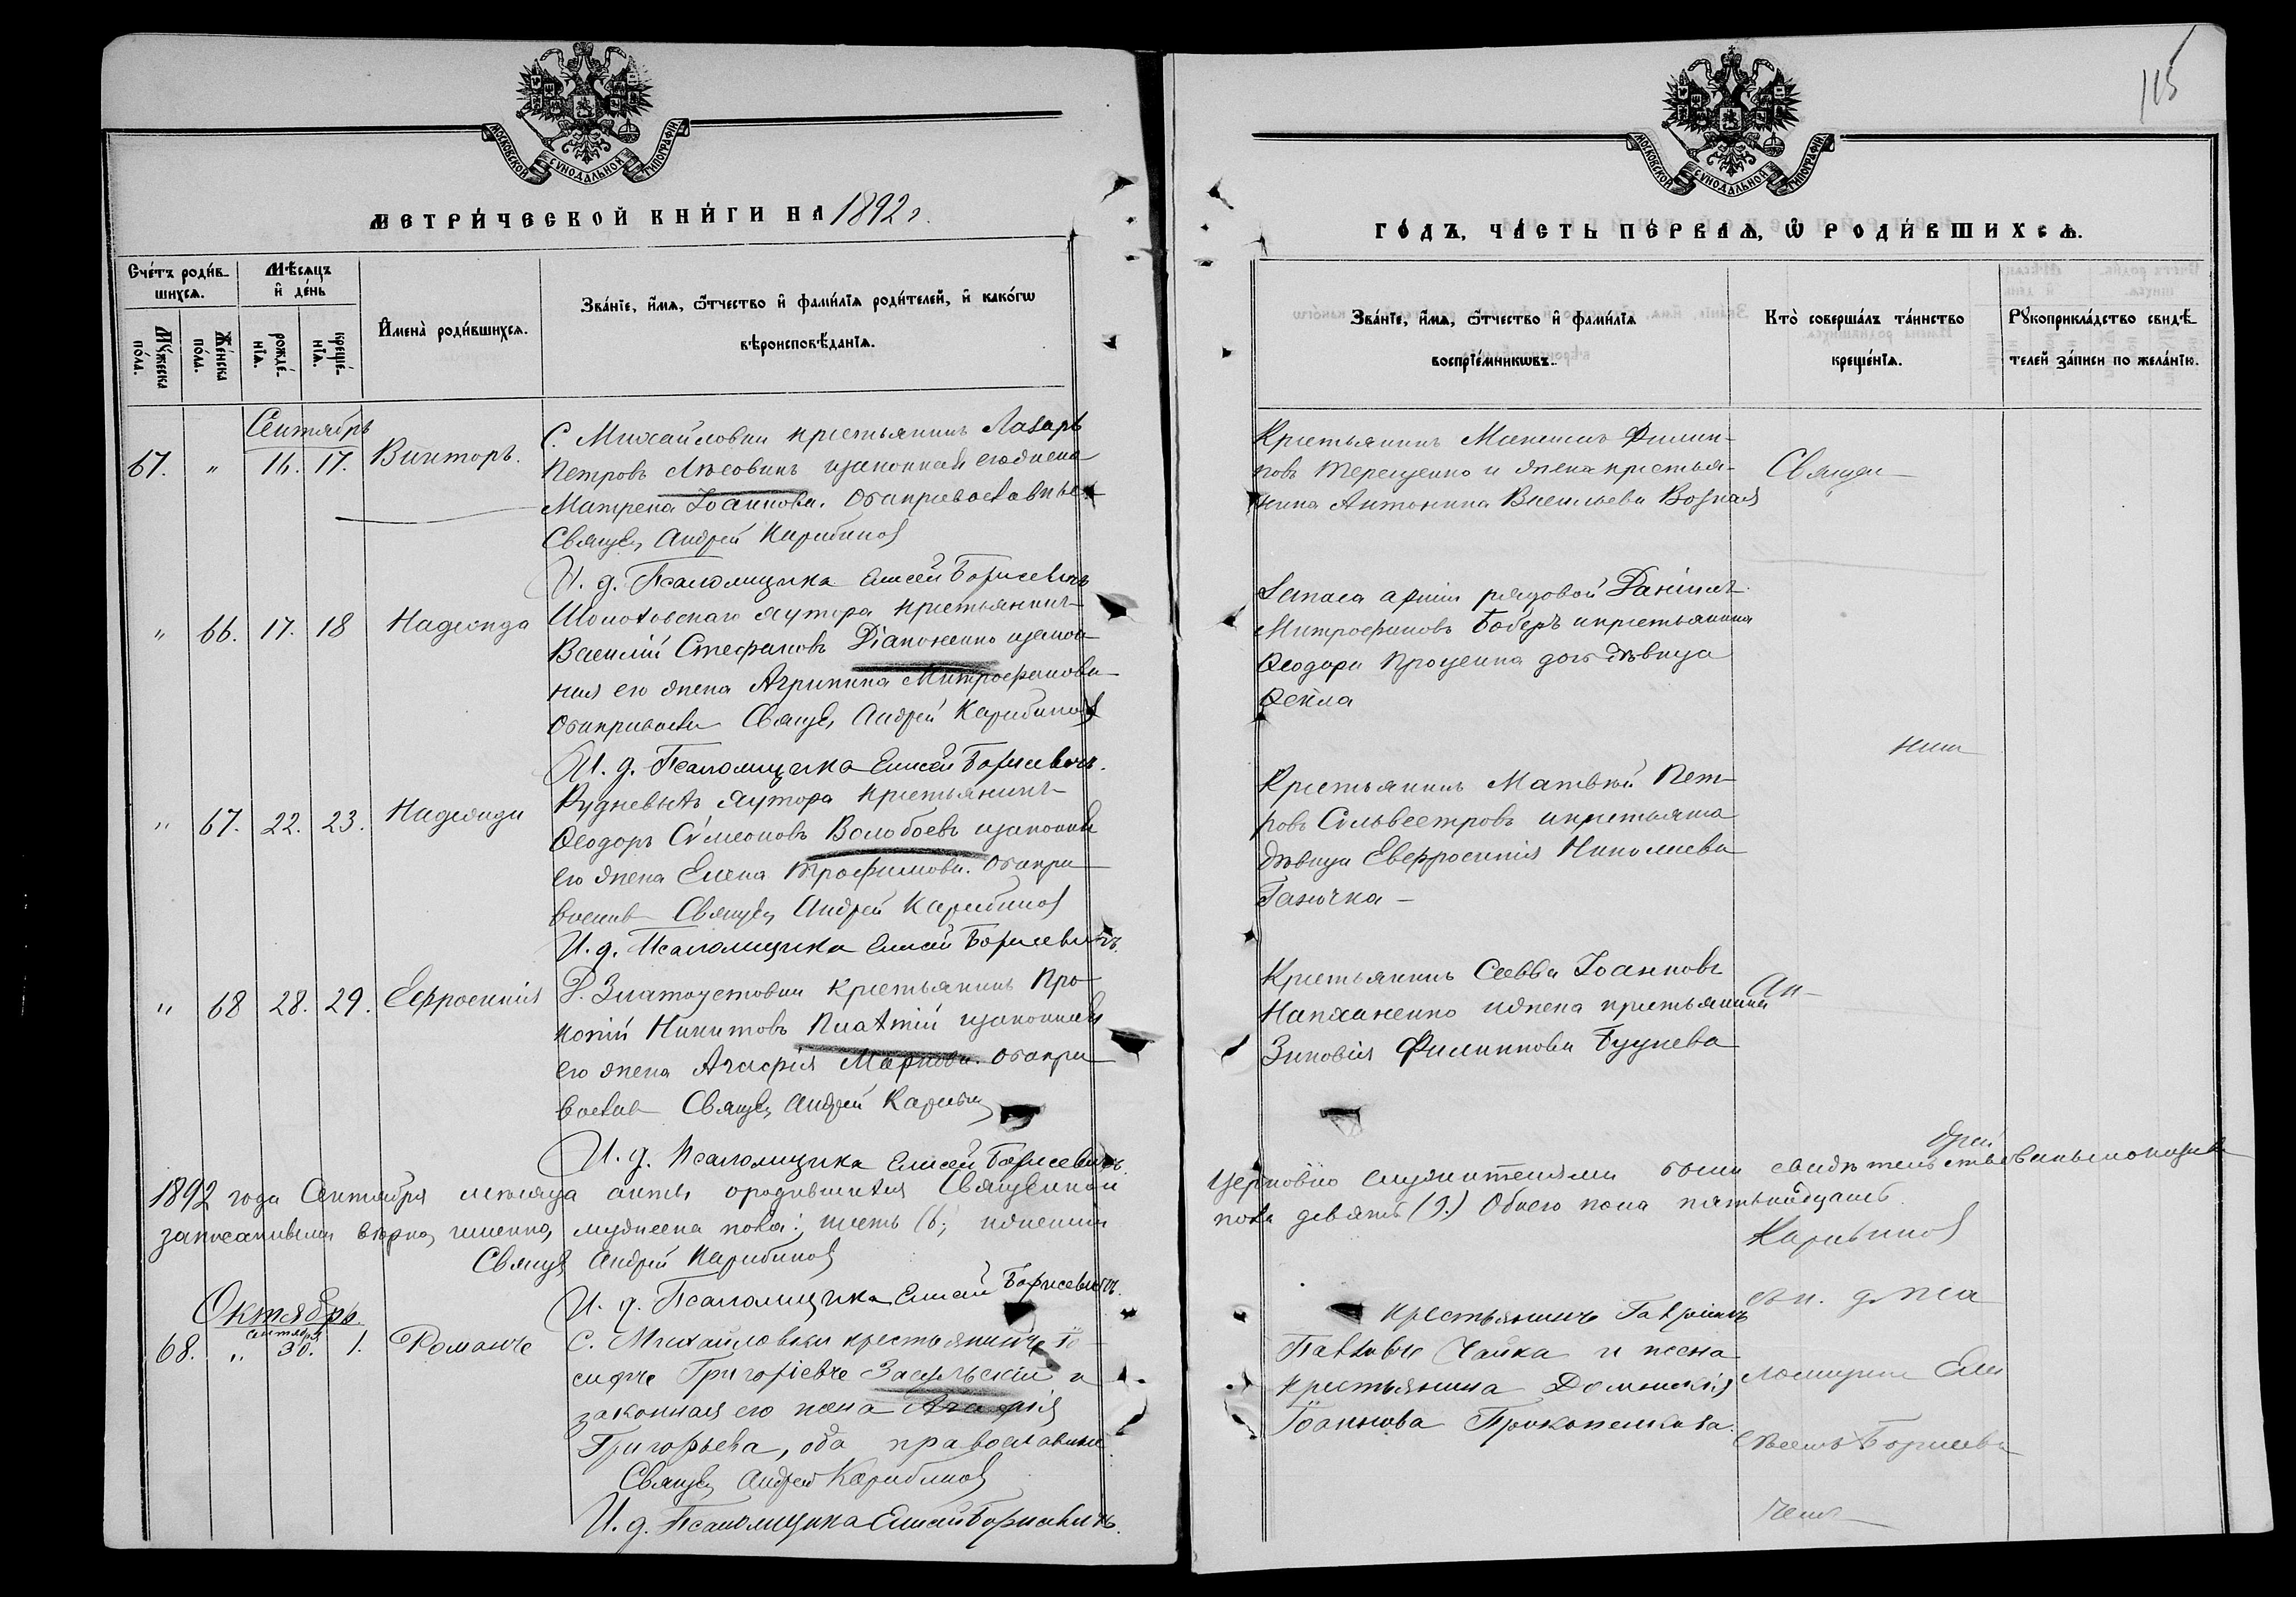 115
МОСКОВСКОЙ СѴНОДАЛЬНОЙ ТИПОГРАФІИ.
МЕТРИ́ЧЕСКОЙ КНИ́ГИ НА 1892 г.
Сче́тъ роди́в-
шихсѧ.
Мѣ́сѧцъ
и҆ де́нь
Мꙋ́жеска
по́ла.
Же́нска
по́ла.
рожде́-
нїѧ.
креще́-
нїѧ.
И҆мена̀ роди́вшихсѧ.
Зва́нїе, и҆́мѧ, ѻ҆́тчество и҆ фами́лїѧ роди́телей, и҆ како́гѡ
вѣроисповѣ́данїѧ.
Сентябрь
67. " 16. 17. Викторъ.
С. Михайловки крестьянинъ Лазарь
Петровъ Лѣсовикъ изаконная его жена
Матрена Іоаннова. Оба православные
Священ. Андрей Карабинов
И. д. Псаломщика Елисей Борисевичъ
" 66. 17. 18 Надежда
хутора крестьянинъ
Василій Стефановъ Діаконенко изакон
ная его жена Агрипина Митрофанова
Оба правосл Священ. Андрей Карабинов
И. д. Псаломщика Елисей Борисевичъ.
" 67. 22. 23. Надежда
Рудневыхъ хутора крестьянинъ
Ѳеодоръ Сѵмеоновъ Волобоевъ изаконная
его жена Елена Трофимова. Оба пра
восла Священ. Андрей Карабинов
И. д. Псаломщика Елисей Борисевичъ.
" 68 28. 29. Евфросинія
Д. Златоустовки крестьянинъ Про
копій Никитовъ изаконная
его жена Агафія Маркова. Оба пра
восла Священ. Андрей Карабин
И. д. Псаломщика Елисей Борисевичъ.
1892 года Сентября месяца акты ородившихся Священной
записанными вѣрно, именно, мужеска пола: шесть (6; иженска
Священ Андрей Карабинов
И. д. Псаломщика Елисей Борисевичъ.
Октябрь.
сентября
68. " 30. 1. Романъ
С. Михайловки крестьянинъ Іо
сифъ Григоріевъ и
законная его жена Агафія
Григорьева, оба православные
Священ. Андрей Карабинов
И. д. Псаломщика Елисей Борисевичъ.
МОСКОВСКОЙ СѴНОДАЛЬНОЙ ТИПОГРАФІИ.
ГО́ДЪ, ЧА́СТЬ ПЕ́РВАѦ, Ѽ РОДИ́ВШИХСѦ.
Зва́нїе, и҆́мѧ, ѻ҆́тчество и҆ фами́лїѧ
воспрїе́мникѡвъ.
Кто̀ соверша́лъ та́инство
креще́нїѧ.
Рꙋкоприкла́дство свидѣ́-
телей за́писи по жела́нїю.
Крестьянинъ Максимъ Филип-
повъ Терещенко и жена крестья-
нина Антонина Васильева Возная
Священ
Запаса арміи рядовой Даніилъ
Митрофановъ Боберъ икрестьянина
Ѳеодора Проценка дочь дѣвица
Ѳекла
ник
Крестьянинъ Матвѣй Пет-
ровъ Сильвестровъ икрестьянка
дѣвица Евфросинія Николаева
Ганочка –
Крестьянинъ Савва Іоанновъ
Напханенко ижена крестьянина
Зиновія Филиппова
Ан-
дрей
Церковно служителями были свидѣтельствованы
пола девять (9.) Обоего пола пятьнадцать
Карабинов
Крестьянинъ Гавріилъ
Павловъ Чайка и жена
крестьянина Домникія
Іоаннова Прокопенкова.
и. д. пса
ломщика Ели
сей Борисеви
чемъ